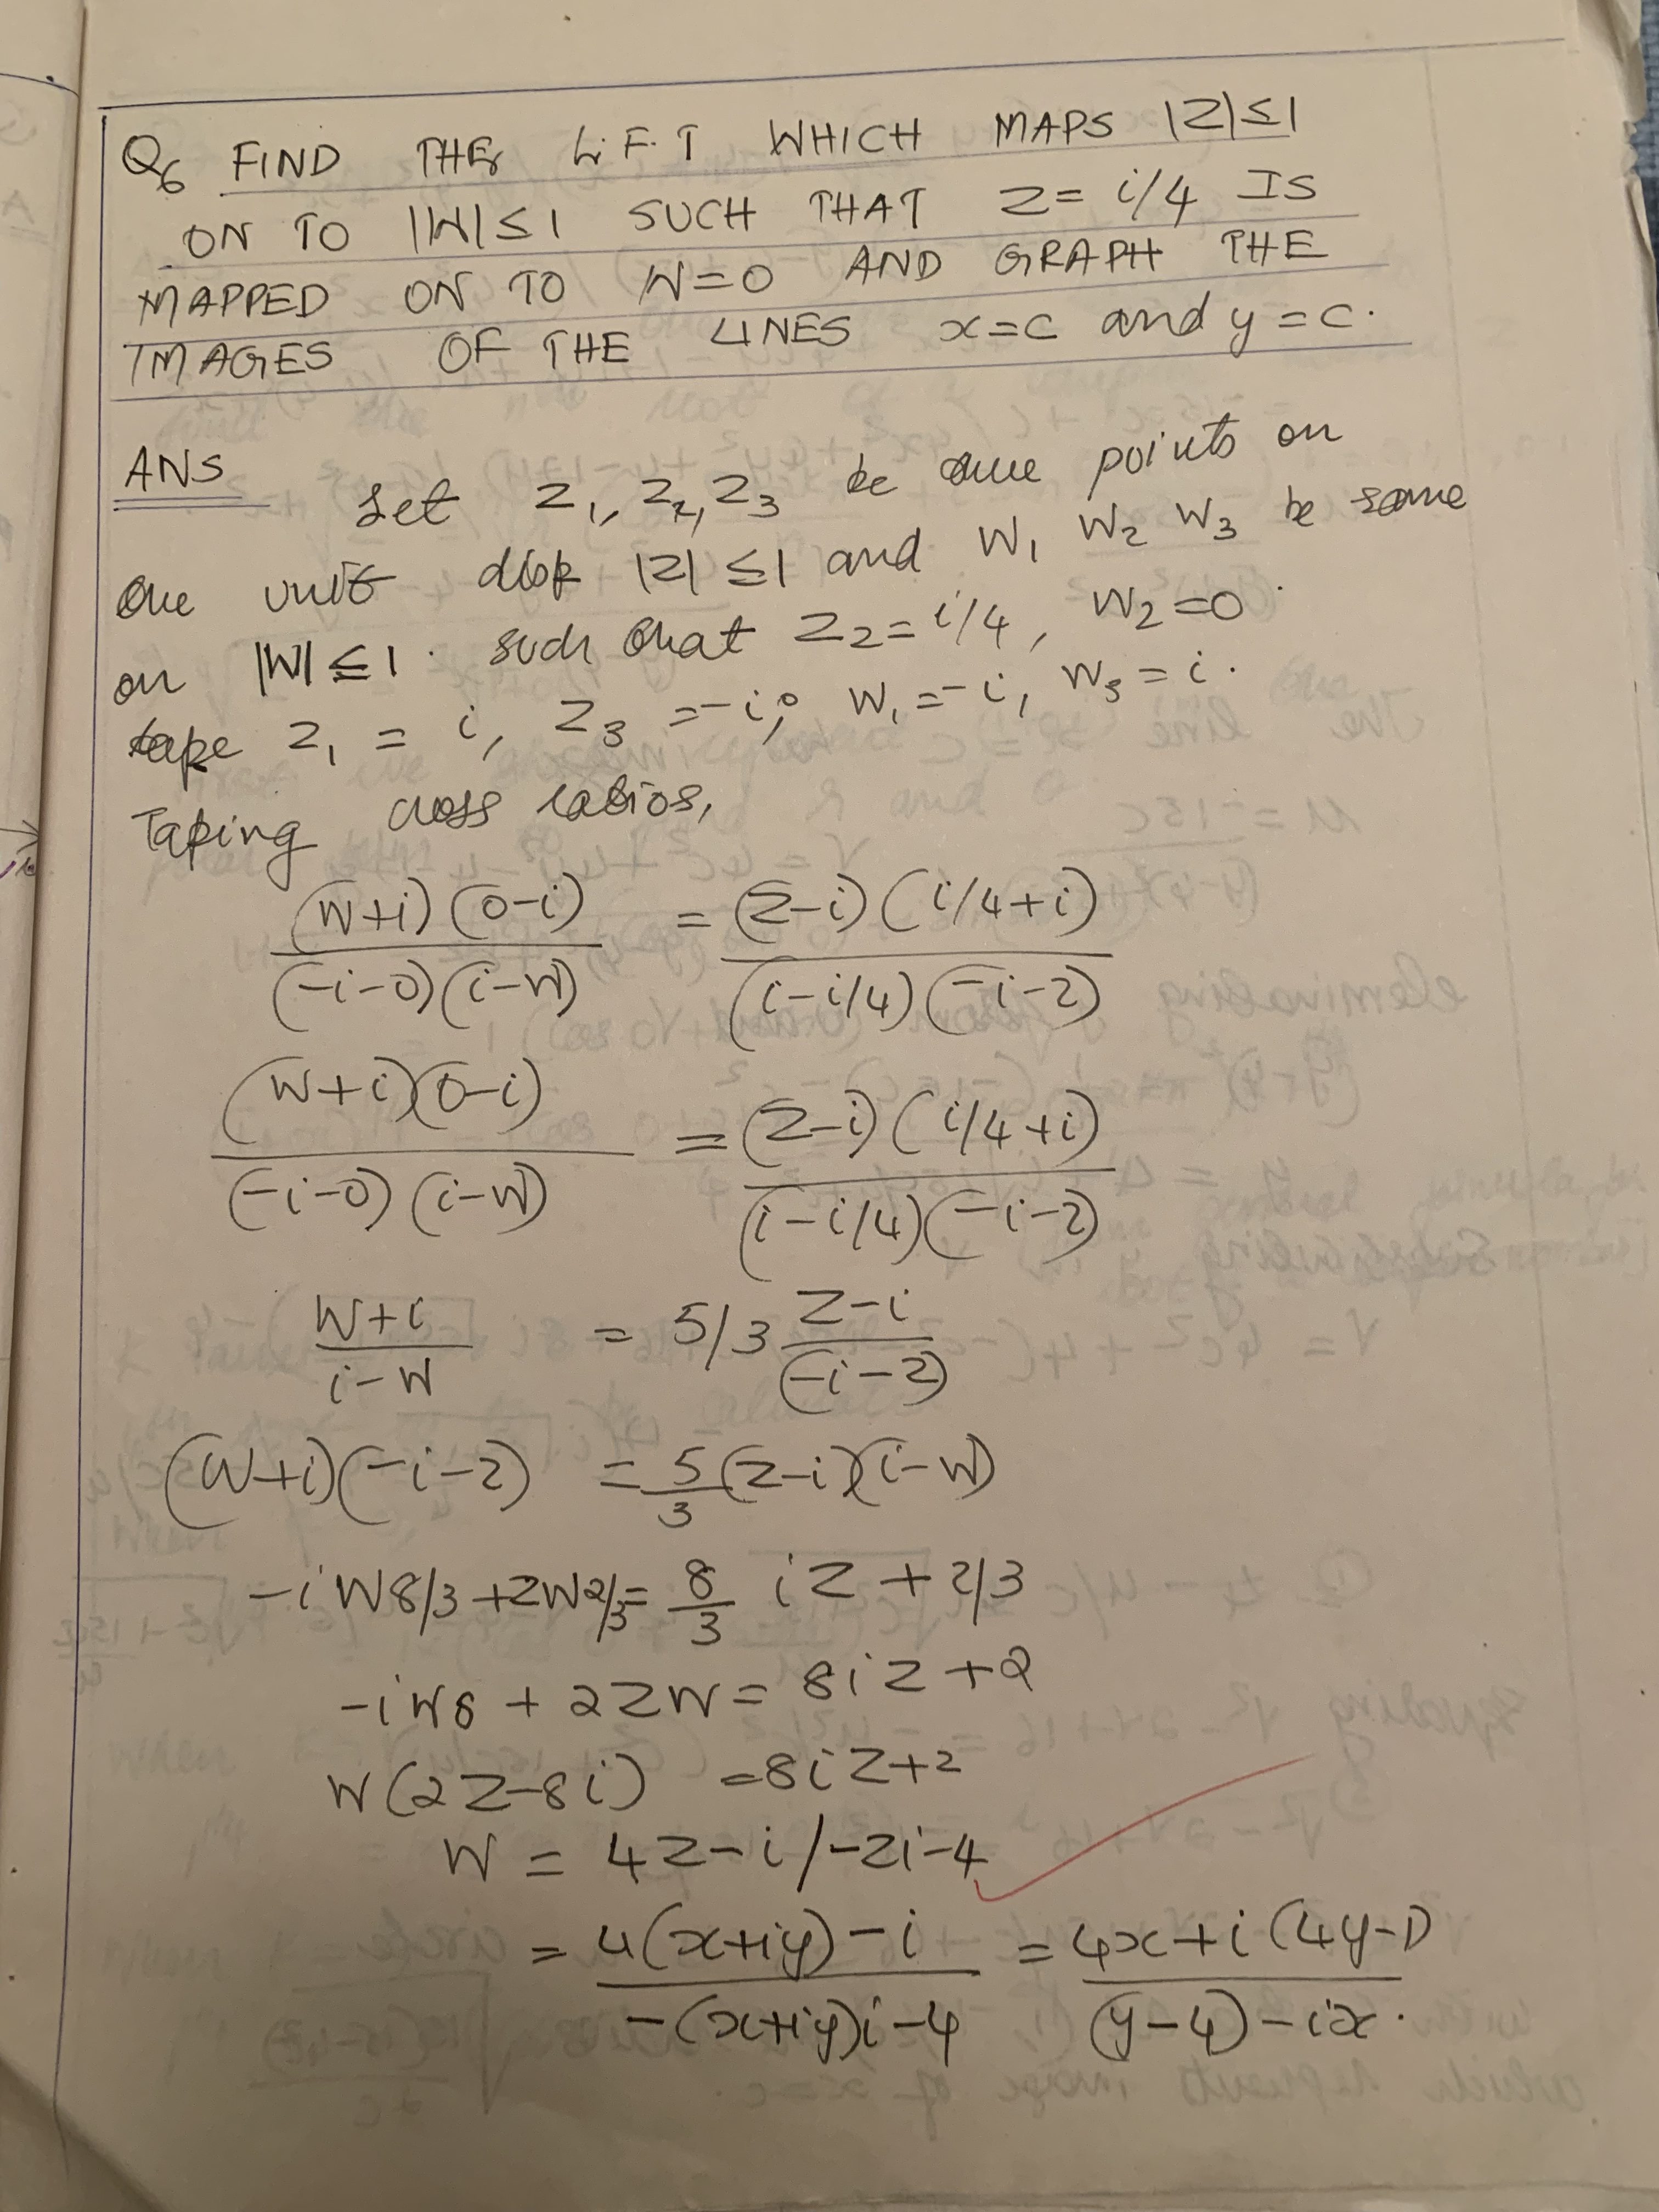 Q6 FIND THE L.F.T WHICH MAPS |Z|≤1
ON TO |W|≤1 SUCH THAT Z = i/4 IS
MAPPED ON TO W=0 AND GRAPH THE
IMAGES OF THE LINES x=c and y=c.
ANS
Let Z1, Z2, Z3 be the points on
the unit disk |Z| ≤1 and W1 W2 W3 be some
on |W| ≤ 1. such that Z2 = i/4, W2 = 0.
take Z1 = i, Z3 = -i, W1 = -i, W3 = i.
Taking cross ratios,
(W+i)(0-i) / (-i-0)(i-W) = (Z-i)(i/4+i) / (i-i/4)(-i-Z)
(W+i)(0-i) / (-i-0)(i-W) = (Z-i)(i/4+i) / (i-i/4)(-i-Z)
W+i / i-W = 5/3 Z-i / (-i-Z)
(W+i)(-i-Z) = 5/3 (Z-i)(i-W)
-iW8/3 + ZW2/3 = 8/3 iZ + 2/3
-iW8 + 2ZW = 8iZ+2
W(2Z-8i) = 8iZ+2
W = 4Z-i/-Zi-4
= 4(x+iy)-i / -(x+iy)i-4 = 4x+i(4y-1) / (y-4)-ix.